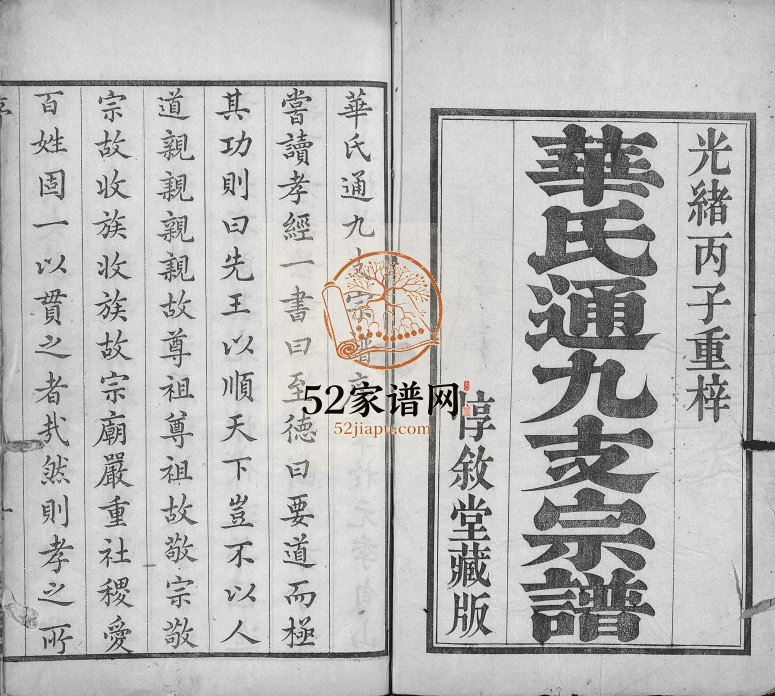 光緒丙子重梓
華氏通九支宗譜
惇敘堂藏版
華氏通九支宗譜序
嘗讀孝經一書曰至德曰要道而極
其功則曰先王以順天下豈不以人
道親親親親故尊祖尊祖故敬宗敬
宗故收族收族故宗廟嚴重社稷愛
百姓固一以貫之者哉然則孝之所
52家谱网
52jiapu.com